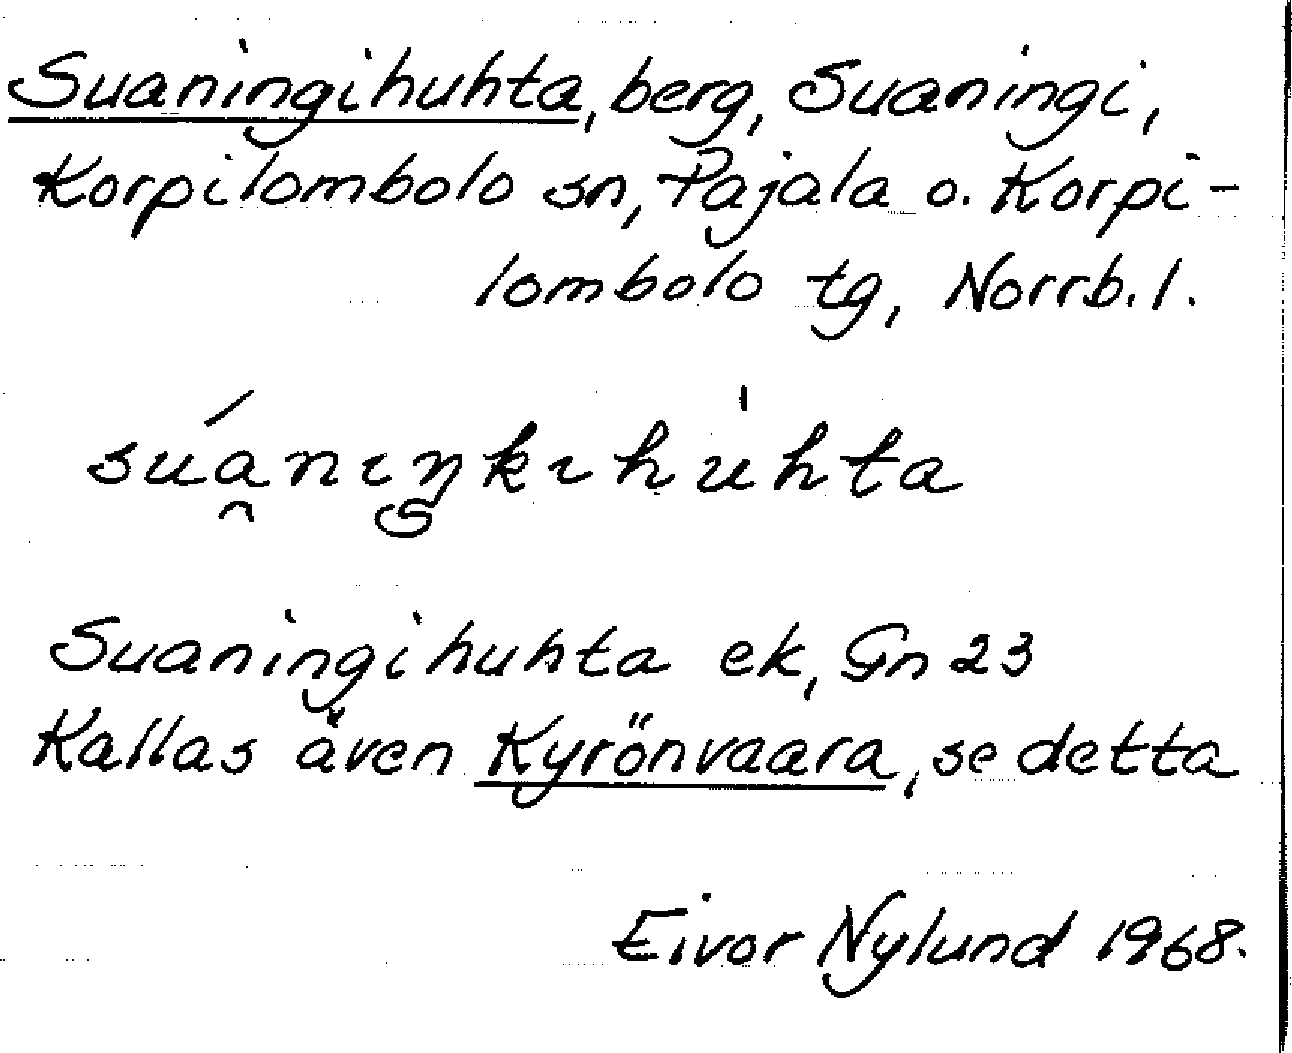 Suaningihuhta, berg, Suaningi,
Korpilombolo sn, Pajala o. Korpi-
lombolo tg, Norrb. l.
suá̯nıŋkıhu̍hta
Suaningihuhta ek, Gn 23
Kallas även Kyrönvaara, se detta
Eivor Nylund 1968.